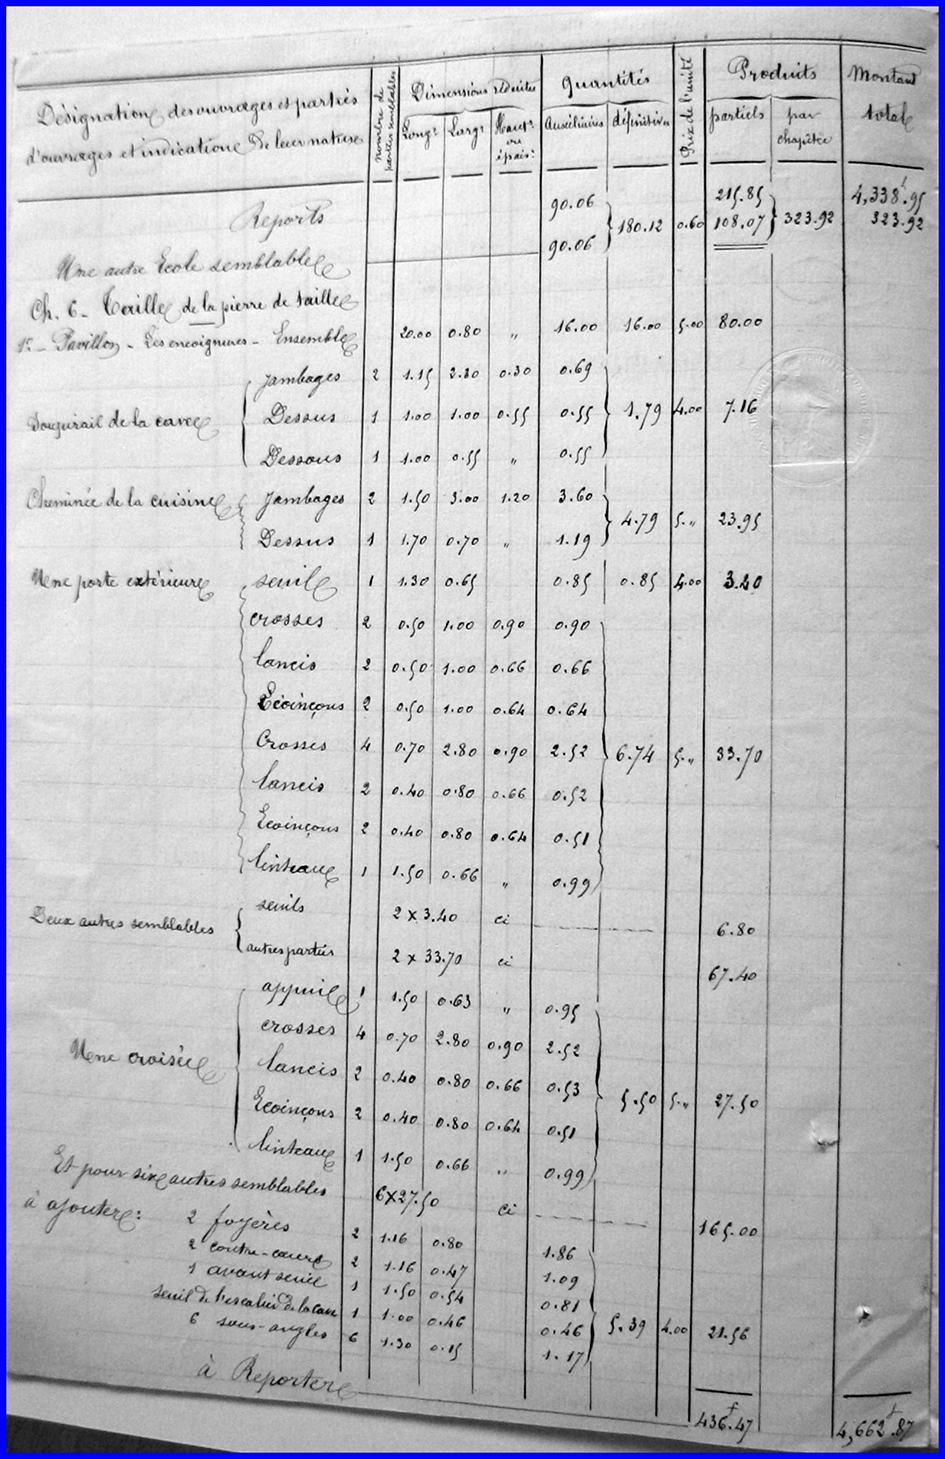 Désignation des ouvrages et parties d'ouvrages et indication de leur nature
Nombre de parties semblables
Dimensions réduites
Longr Largr Hautr ou épaisr
Quantités
Auxiliaires définitives
Prix de l'unité
Produits
partiels par chapitre
Montant total
Reports 90.06 180.12 0.60 215.85 323.92 4,338f.95
Une autre Ecole semblable 90.06 108.07 323.92
Ch. 6 - Taille de la pierre de taille
1º - Pavillon - Les encoignures - Ensemble 20.00 0.80 " 16.00 16.00 5.00 80.00
Soupirail de la cave
Jambages 2 1.15 2.30 0.30 0.69
Dessus 1 1.00 1.00 0.55 0.55 1.79 4.00 7.16
Dessous 1 1.00 0.55 " 0.55
Cheminée de la cuisine Jambages 2 1.50 3.00 1.20 3.60
4.79 5." 23.95
Dessus 1 1.70 0.70 " 1.19
Une porte extérieure seuil 1 1.30 0.65 0.85 0.85 4.00 3.40
crosses 2 0.50 1.00 0.90 0.90
lancis 2 0.50 1.00 0.66 0.66
Ecoinçons 2 0.50 1.00 0.64 0.64
Crosses 4 0.70 2.80 0.90 2.52 6.74 5." 33.70
lancis 2 0.40 0.80 0.66 0.52
Ecoinçons 2 0.40 0.80 0.64 0.51
linteau 1 1.50 0.66 " 0.99
Deux autres semblables
seuils 2 x 3.40 ci 6.80
autres parties 2 x 33.70 ci 67.40
appui 1 1.50 0.63 " 0.95
crosses 4 0.70 2.80 0.90 2.52
Une croisée
lancis 2 0.40 0.80 0.66 0.53
Ecoinçons 2 0.40 0.80 0.64 0.51 5.50 5." 27.50
linteau 1 1.50 0.66 " 0.99
Et pour six autres semblables 6 x 27.50 ci 165.00
à ajouter: 2 foyères 2 1.16 0.80 1.86
2 contre-cœurs 2 1.16 0.47 1.09
1 avant seuil 1 1.50 0.54 0.81
seuil de l'escalier de la cave 1 1.00 0.46 0.46 5.39 4.00 21.56
6 sous-angles 6 1.30 0.15 1.17
à Reporter 436f.47 4,662f.87